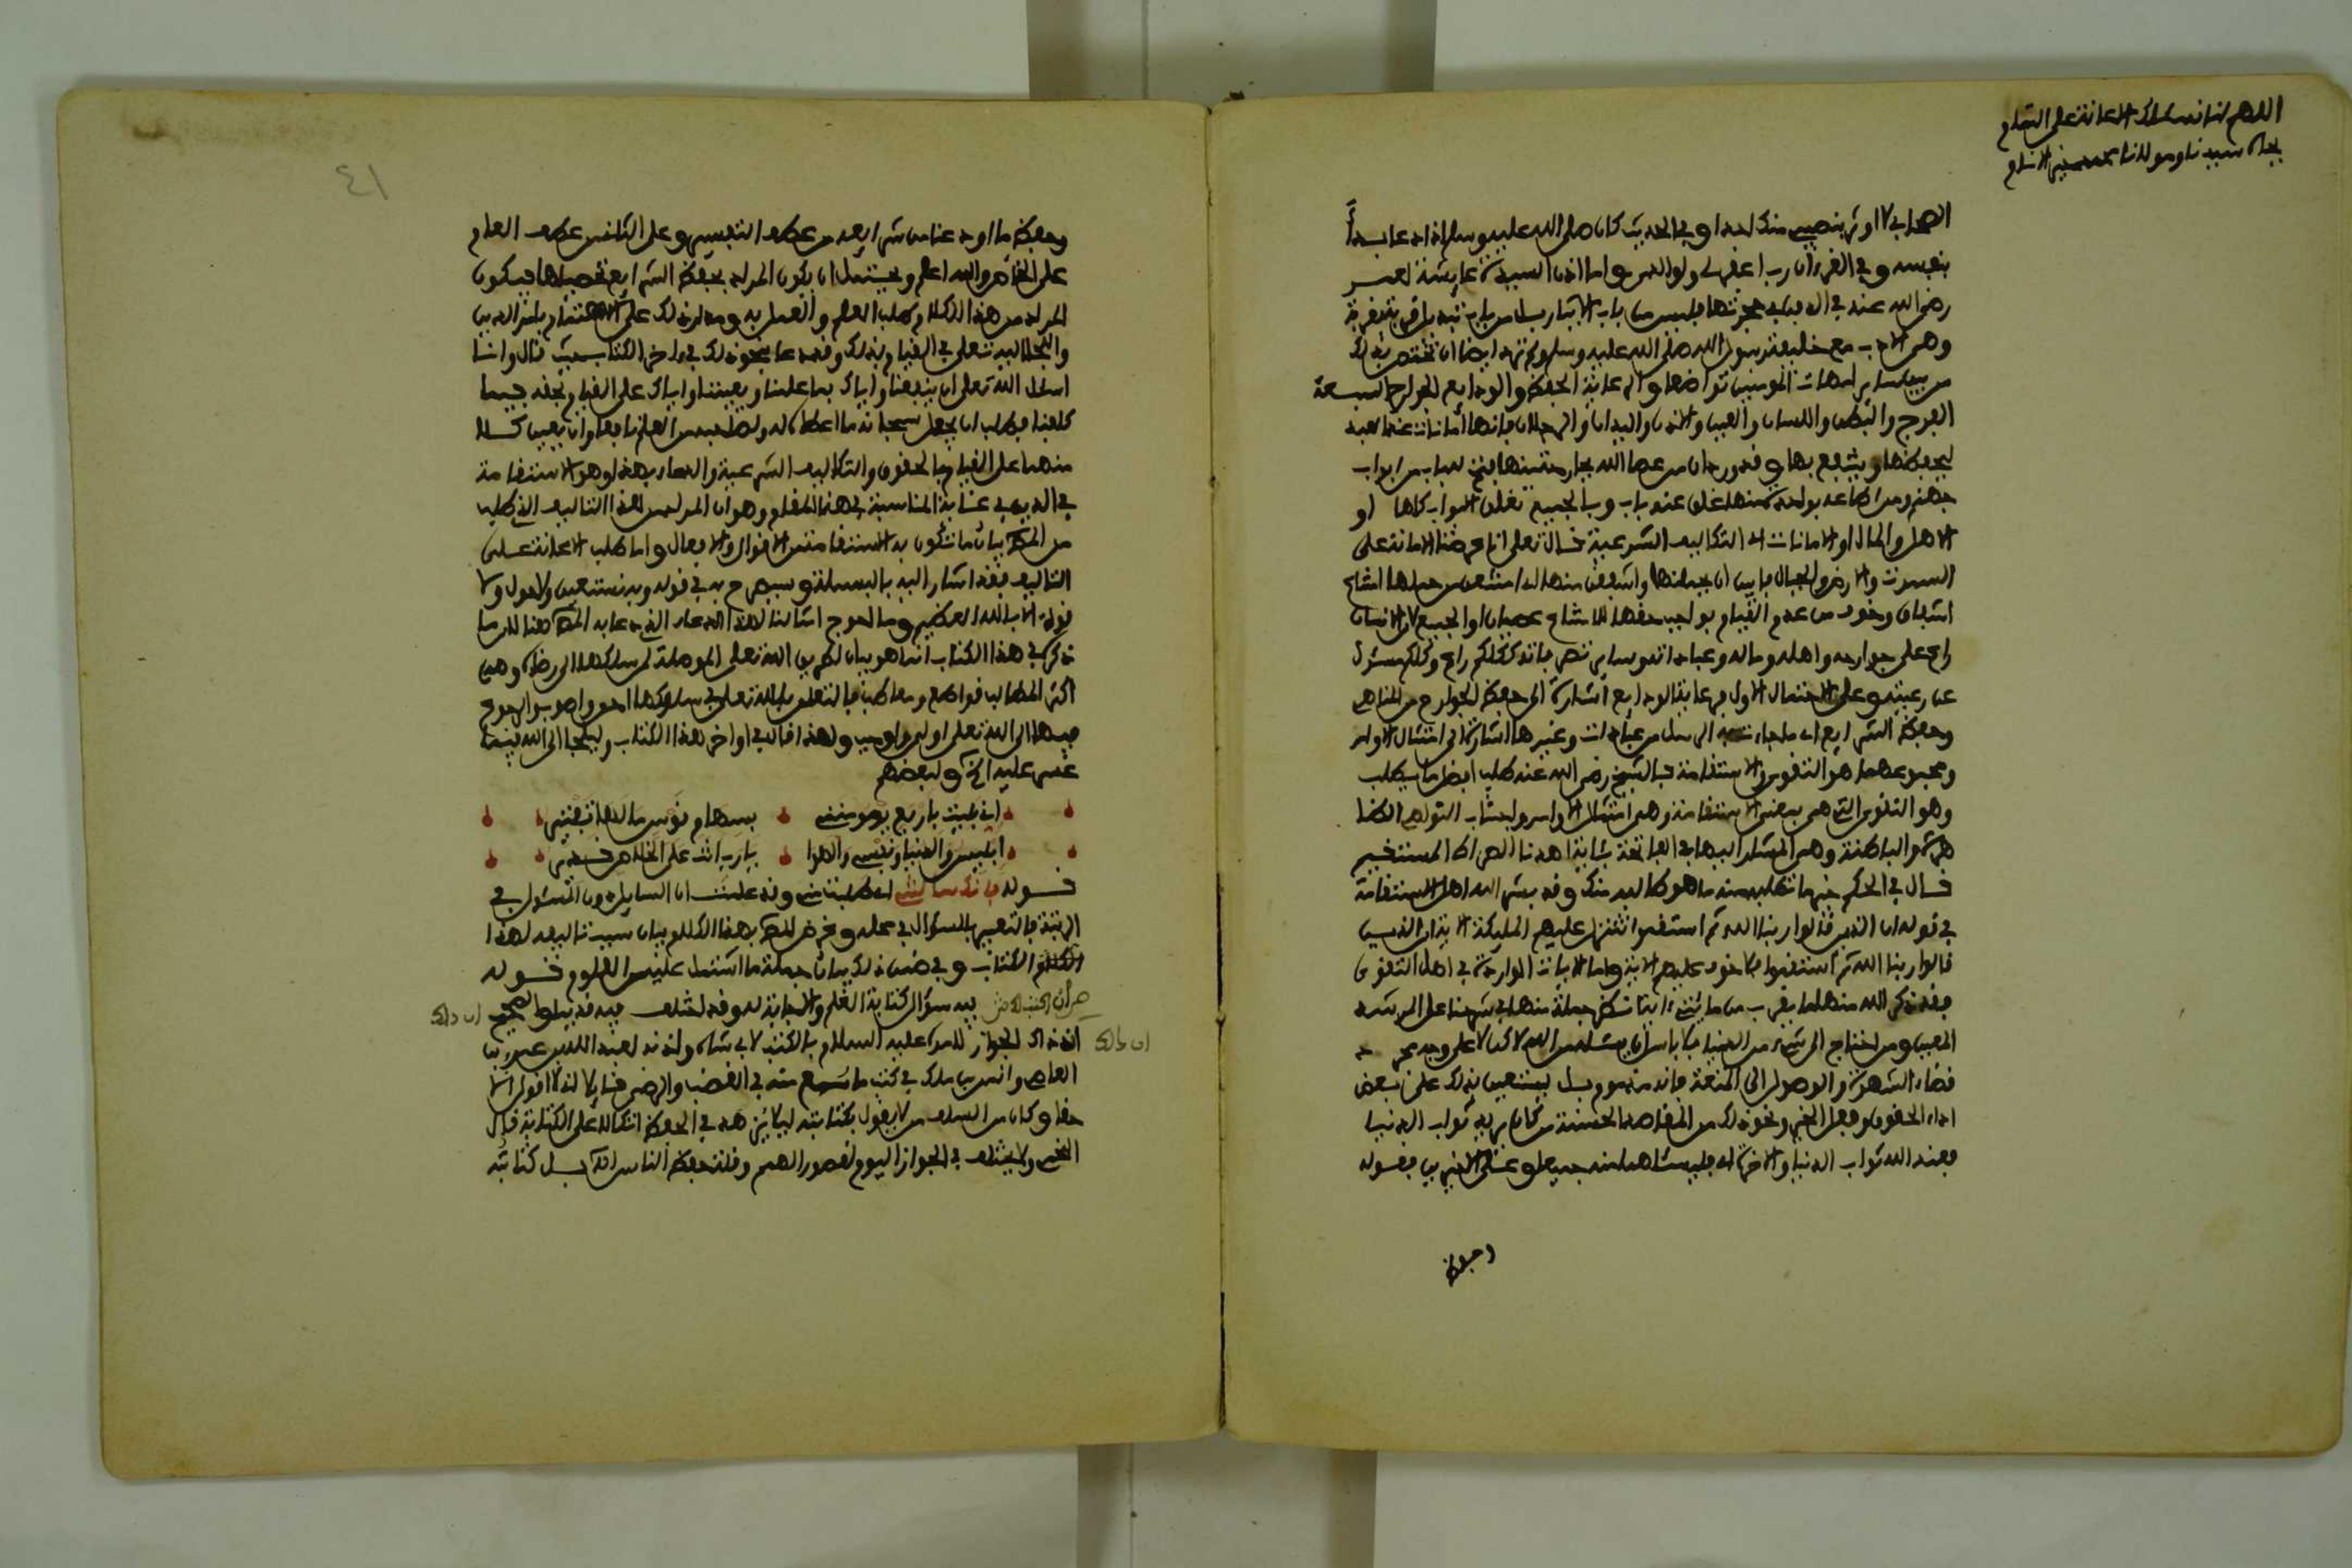 اللهم انا نسئلك الاعانة على التمام
بجاه سيدنا ومولانا محمد الانام
الصحابي لا اوثر بنصيبي منك احدا وفي الحديث كان صلى الله عليه وسلم اذا دعا بدأ
بنفسه وفي القرءان رب اغفر لي ولوالدي واما اذن السيدة عايشة لعمر
رضي الله عنه في الدفن في حجرتها فليس من باب الايثار بل من باب
وهي الادب مع خليفة رسول الله صلى الله عليه وسلم ايضا ان تختص بذلك
من بين ساير امهات المومنين تواضعا والرعاية الحفظ والودايع الجوارح السبعة
الفرج والبطن واللسان والعين والاذن واليدان والرجلان فانها أمانات عند العبد
ليحفظها وينتفع بها وقد ورد ان من عصا الله بجارحة منها فتح له باب من ابواب
جهنم ومن اطاعه بواحدة منها غلق عنه باب وبالجميع تغلق الابواب كلها او
الاهل والمال او الامانات اي التكاليف الشرعية قال تعلى انا عرضنا الامانة على
السموات والارض والجبال فابين ان يحملنها واشفقن منها اي امتنعن من حملها امتناع
اشفاق وخوف من عدم القيام بواجب حقها لا امتناع عصيان او الجميع لان الانسان
راع على جوارحه واهله وماله وعباداته وساير فكلكم راع وكلكم مسئول
عن رعيته وعلى الاحتمال الاول فرعاية الودايع اشارة الى حفظ الجوارح من المناهي
وحفظ الشرايع اي ما جاءت به الرسل من عبادات وغيرها اشارة الى امتثال الاوامر
ومجموعهما هو التقوى والاستقامة فالشيخ رضي الله عنه طلب افضل ما يطلب
وهو التقوى التي هي بمعنى الاستقامة وهي امتثال الاوامر واجتناب النواهي الظا
هرة والباطنة وهي المشار اليها في الفاتحة بئاية اهدنا الصراط المستقيم
قال في الحكم خير ما تطلبه منه ما هو طالبه منك وقد بشر الله اهل الاستقامة
في قوله ان الذين قالوا ربنا الله ثم استقموا تتنزل عليهم المليكة الاية ان الذين
قالوا ربنا الله ثم استقموا فلا خوف عليهم الاية واما الايات الواردة في اهل التقوى
فقد ذكر الله منها ما يقرب من مايتي اية انظر جملة منها في شرحنا على المرشد
المعين ومن احتاج الى شيء من الدنيا فلا باس ان يسئله من الله لاكن لا على وجه مجر د
قضاء الشهوة والوصول الى المتعة فانه مذموم بل ليستعين بذلك على بعض
اداء الحقوق وفعل الخير ونحو ذلك من المقاصد الحسنة من كان يريد ثواب الدنيا
فعند الله ثواب الدنيا والاخرة اي فليسئلهما منه جميعا و قوله
وحفظ
٤١
وحفظ ما اودعنا من شرايعه من عطف التفسير وعلى الثاني من عطف العام
على الخاص والله اعلم ويحتمل ان يكون المراد بحفظ الشرايع تحصيلها فيكون
المراد من هذا الكلام طلب العلم والعمل به ومدار ذلك على الاهتمام بامر الدين
والتجا اليه تعلى في القيام بذلك وقد دعا بنحو ذلك في ءاخر الكتاب حيث قال وانا
اسئل الله تعلى ان ينفعنا واياك بما علمنا ويعيننا واياك على القيام بحقه فيما
كلفنا فطلب ان يجعل سبحانه ما اعطاه له ولطالبه من العلم نافعا وان يعين كلا
منهما على القيام بالحقوق والتكاليف الشرعية والدعاء بهذا وهو الاستقامة
في الدين في غاية المناسبة لهذا المقام وهو ان المراد من هذا التاليف الذي طلب
من المص بيان ما تكون به الاستقامة من الاقوال والافعال واما طلب الاعانة على
التاليف فقد اشار اليه بالبسملة وسيصرح به في قوله وبه نستعين ولا حول ولا
قوة الا بالله العظيم وما احوج امثالنا لهذا الدعاء الذي دعا به المص هنا لان ما
ذكر في هذا الكتاب انما هو بيان لطريق الله تعلى الموصلة لمن سلكها الى رضاه وهي
اكثر المطالب قواطع ومعاطب فالتعلق بالله تعلى في سلوكها احق واصوب والرجوع
فيها الى الله تعلى اولى واوجب ولهذا قال في اواخر هذا الكتاب وليلجا الى الله فيما
عسر عليه الخ ولبعضهم
اني بليت باربع يرمونني بسهام قوس ما لها تبقيني
ابليس والدنيا ونفسي والهوا يا رب انت على الخلاص
قوله فانك سألتني اي طلبت مني وقد علمت ان السايل دون المسئول في
الرتبة فالتعبير بالسؤال في محله وغرض المص بهذا الكلام بيان سبب تاليفه لهذا
الكتاب وفي ضمن ذلك بيان جملة ما اشتمل عليه من العلوم قوله
ان اكتب لك فيه سؤال كتابة العلم والاجابة له وقد اختلف فيه قديما والصحيح ان ذاك
اذ ذاك الجواز لامره عليه السلام بالكتب لابي شاه واذنه لعبد الله بن عمرو بن ان ذاك
العاص وانس بن ملك في كتب ما سمع منه في الغضب والرضى قايلا اني لا اقول الا
حقا وكان من السلف من لا يقول بكتابته ليلا يزهد في الحفظ اتكالا على الكتابة قال
الفخر ولا يختلف في الجواز اليوم لقصور الهمم وقلة حفظ الناس له بل كتابته